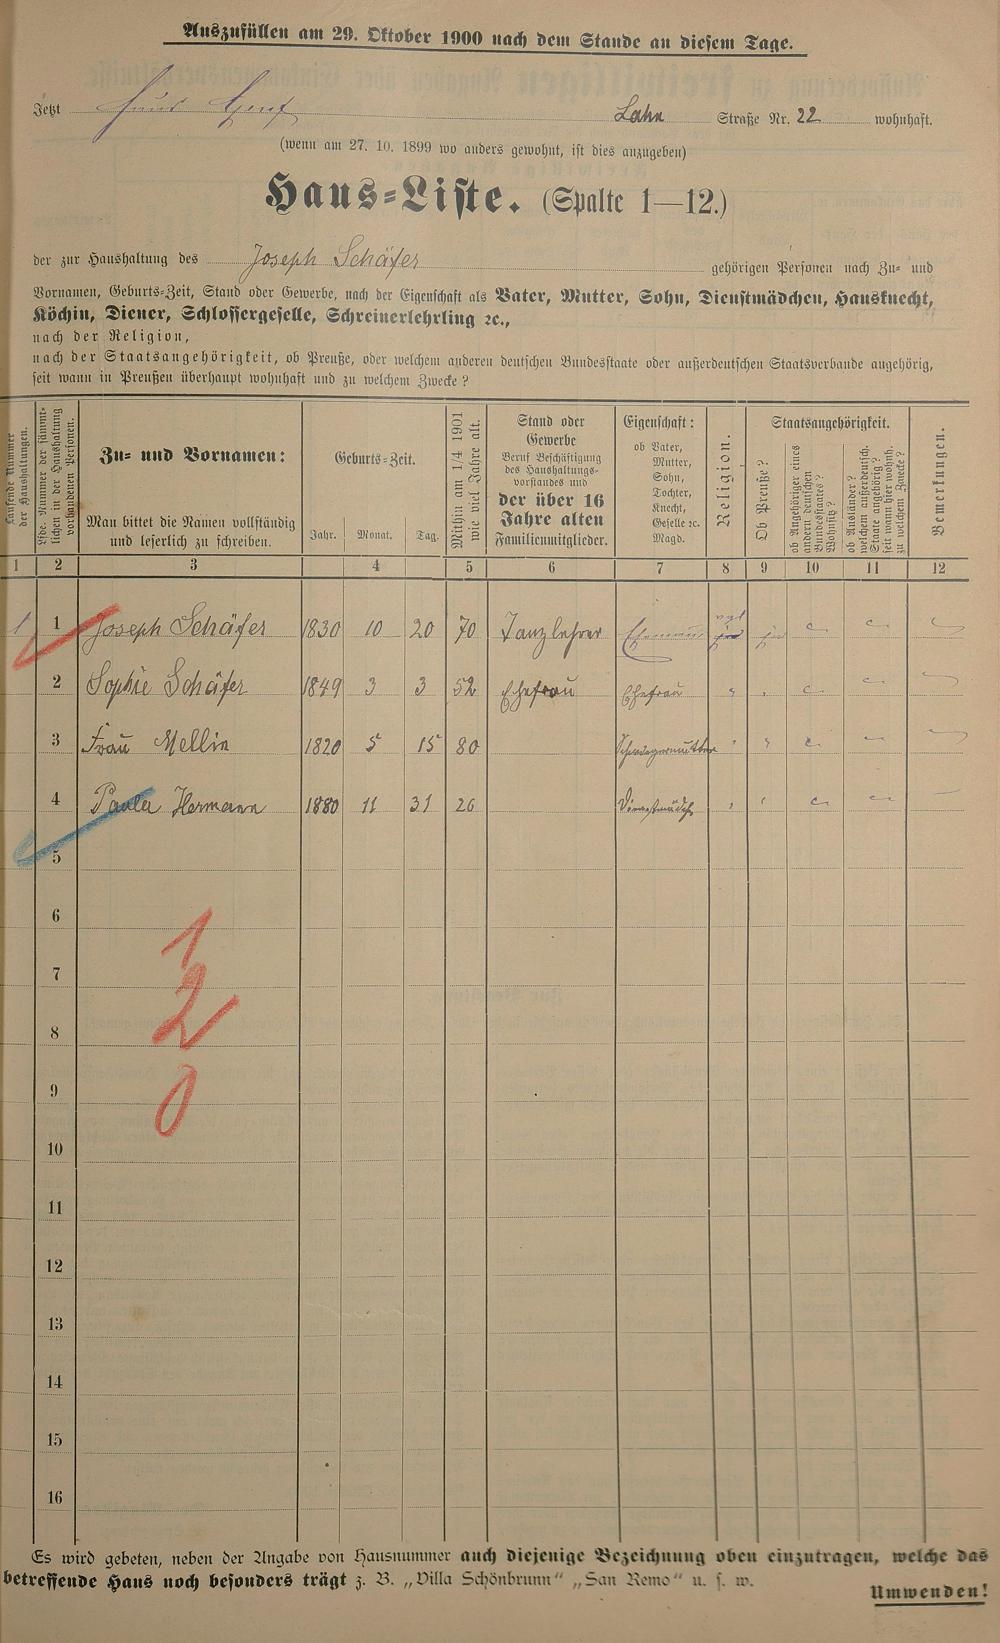 Auszufüllen am 29. Oktober 1900 nach dem Stande an diesem Tage.
Jetzt Haus Lahn Straße Nr. 22 wohnhaft.
(wenn am 27. 10. 1899 wo anders gewohnt, ist dies anzugeben)
Haus-Liste. (Spalte 1—12.)
der zur Haushaltung des Joseph Schäfer gehörigen Personen nach Zu- und
Vornamen, Geburts-Zeit, Stand oder Gewerbe, nach der Eigenschaft als Vater, Mutter, Sohn, Dienstmädchen, Hausknecht,
Köchin, Diener, Schlossergeselle, Schreinerlehrling ꝛc.,
nach der Religion,
nach der Staatsangehörigkeit, ob Preuße, oder welchem anderen deutschen Bundesstaate oder außerdeutschen Staatsverbande angehörig,
seit wann in Preußen überhaupt wohnhaft und zu welchem Zwecke?
Laufende Nummer der Haushaltungen.
Lfde. Nummer der sämmtlichen in der Haushaltung vorhandenen Personen.
Zu- und Vornamen:
Man bittet die Namen vollständig
und leserlich zu schreiben.
Geburts-Zeit.
Jahr. Monat. Tag.
Mithin am 1/4 1901
wie viel Jahre alt.
Stand oder
Gewerbe
Beruf Beschäftigung
des Haushaltungs-
vorstandes und
der über 16
Jahre alten
Familienmitglieder.
Eigenschaft:
ob Vater,
Mutter,
Sohn,
Tochter,
Knecht,
Geselle ꝛc.
Magd.
Religion.
Staatsangehörigkeit.
Ob Preuße?
ob Angehöriger eines
andern deutschen
Bundesstaates?
Wohnsitz?
ob Ausländer?
welchem außerdeutsch.
Staate angehörig?
seit wann hier wohnh.
zu welchem Zwecke?
Bemerkungen.
1 2 3 4 5 6 7 8 9 10 11 12
1 1 Joseph Schäfer 1830 10 20 70 Tanzlehrer Ehemann ja
2 Sophie Schäfer 1849 3 3 52 Ehefrau Ehefrau " "
3 Frau Mellin 1820 5 15 80 Schwiegermutter " "
4 Paula Hermann 1880 11 31 20 Dienstmädch " "
5
6
7
8
9
10
11
12
13
14
15
16
1
2
0
Es wird gebeten, neben der Angabe von Hausnummer auch diejenige Bezeichnung oben einzutragen, welche das
betreffende Haus noch besonders trägt z. B. „Villa Schönbrunn“ „San Remo“ u. s. w.
Umwenden!